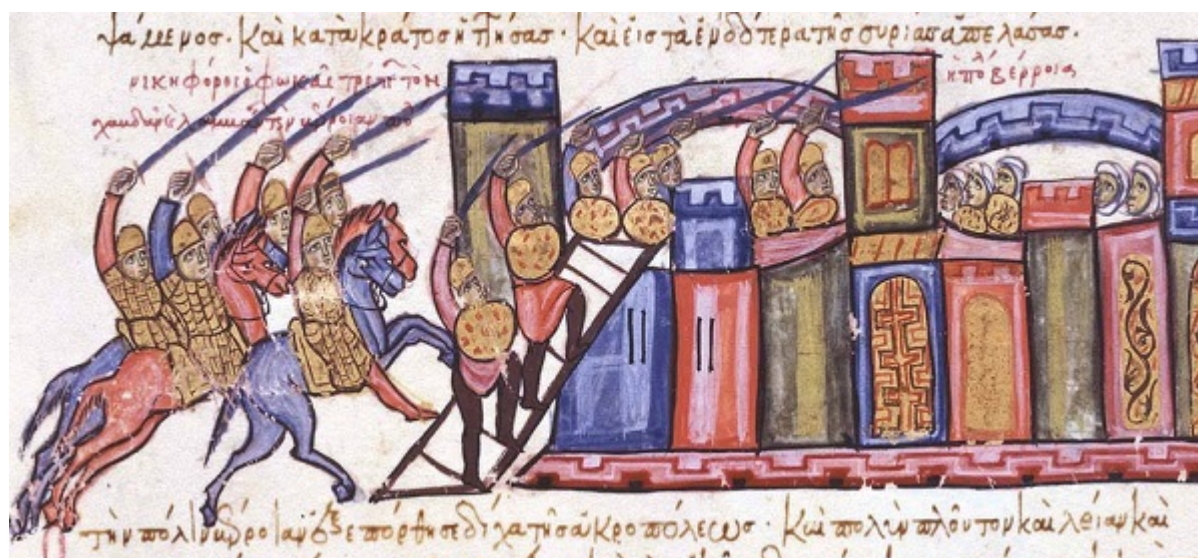 ψάμενος· καὶ κατακράτος ἡττήσας· καὶ εἰς τὰ ἐνδότερα τῆς συρίας ἀπελάσας·
νικηφόρος ὁ φωκᾶς τρέπει τὸν
ἡ πόλις βέρροια
τὴν πόλιν βέρροιαν ἐξεπόρθησε δίχα τῆς ἀκροπόλεως· καὶ πολὺν πλοῦτον καὶ λείαν καὶ